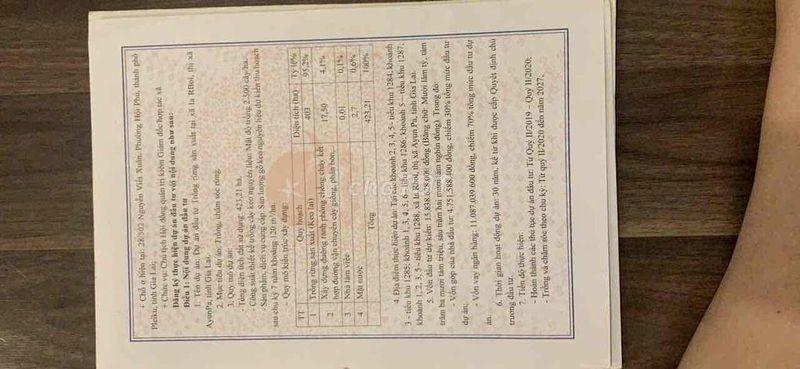 + Chỗ ở hiện tại: 28/302 Nguyễn Viết Xuân, Phường Hội Phú, thành phố
Pleiku, tỉnh Gia Lai;
+ Chức vụ: Chủ tịch Hội đồng quản trị kiêm Giám đốc hợp tác xã.
Đăng ký thực hiện dự án đầu tư với nội dung như sau:
Điều 1: Nội dung dự án đầu tư
1. Tên dự án: Dự án đầu tư Trồng rừng sản xuất tại xã Ia RBol, thị xã
AyunPa, tỉnh Gia Lai.
2. Mục tiêu dự án: Trồng, chăm sóc rừng.
3. Quy mô dự án:
Tổng diện tích đất sử dụng: 423,21 ha.
Công suất thiết kế trồng cây keo nguyên liệu: Mật độ trồng 2.500 cây/ha.
Sản phẩm, dịch vụ cung cấp: Sản lượng gỗ keo nguyên liệu dự kiến thu hoạch
sau chu kỳ 7 năm khoảng 120 m³/ha.
- Quy mô kiến trúc xây dựng:
TT Quy hoạch Diện tích (ha) Tỷ lệ%
1 Trồng rừng sản xuất (Keo lai) 403 95,2%
2 Xây dựng đường ranh phòng chống cháy, kết
hợp đường vận chuyển cây giống, phân bón, 17,50 4,1%
3 Nhà làm việc 0,01 0,1%
4 Mặt nước 2,7 0,6%
Tổng 423,21 100%
4. Địa điểm thực hiện dự án: Tại các khoảnh 2, 3, 4, 5 - tiểu khu 1284, khoảnh
3 - tiểu khu 1285; khoảnh 1, 3, 4, 5, 6 - tiểu khu 1286; khoảnh 5 - tiểu khu 1287;
khoảnh 1, 2, 3, 5 - tiểu khu 1288, xã Ia Rbol, thị xã Ayun Pa, tỉnh Gia Lai.
5. Vốn đầu tư dự kiến: 15.838.628.000 đồng (Bằng chữ: Mười lăm tỷ, tám
trăm ba mươi tám triệu, sáu trăm hai mươi tám nghìn đồng). Trong đó:
- Vốn góp của nhà đầu tư: 4.751.588.400 đồng, chiếm 30% tổng mức đầu tư
dự án;
- Vốn vay ngân hàng: 11.087.039.600 đồng, chiếm 70% tổng mức đầu tư dự
án.
6. Thời gian hoạt động dự án: 30 năm, kể từ khi được cấp Quyết định chủ
trương đầu tư.
7. Tiến độ thực hiện:
- Hoàn thành các thủ tục dự án đầu tư: Từ Quý II/2019 – Quý II/2020;
- Trồng và chăm sóc theo chu kỳ: Từ quý II/2020 đến năm 2027.